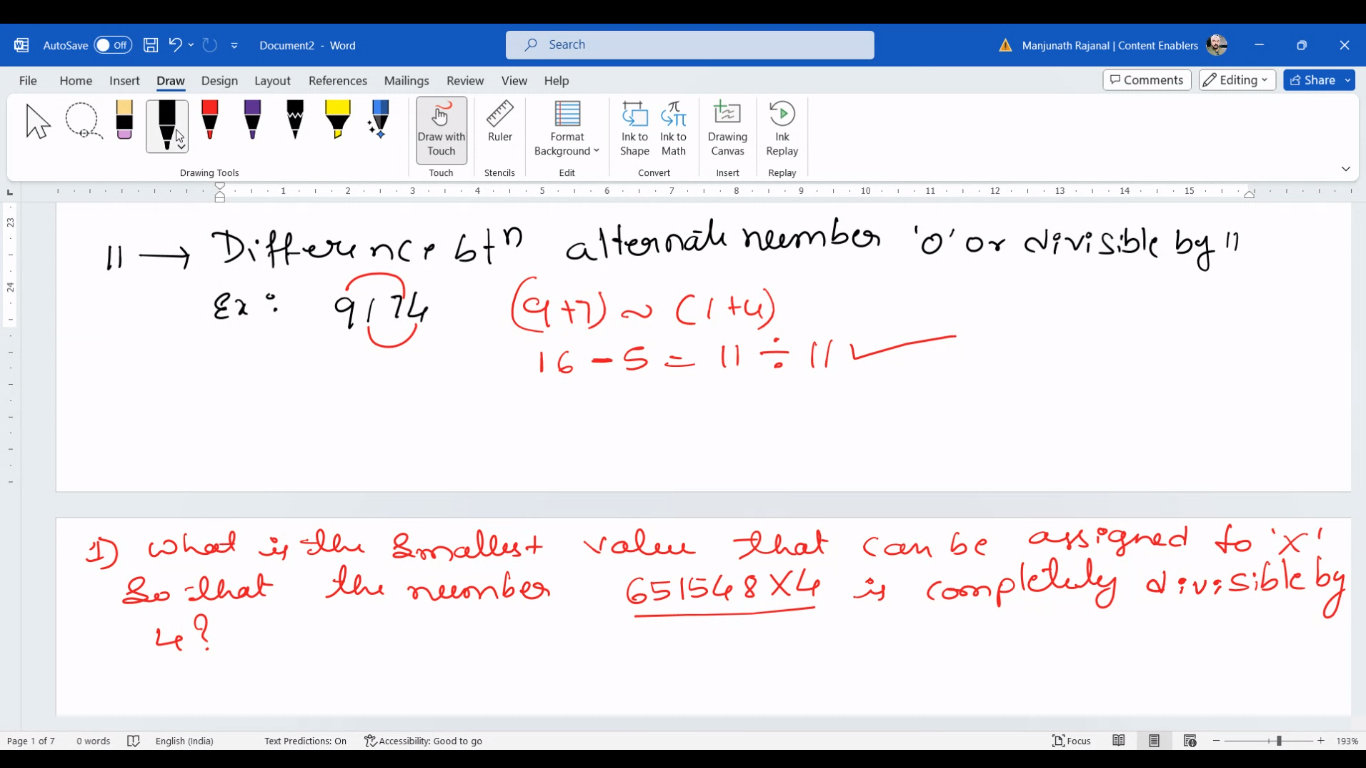 AutoSave Off Document2 - Word Search Manjunath Rajanal | Content Enablers
File Home Insert Draw Design Layout References Mailings Review View Help Comments Editing Share
Draw with Touch Ruler Format Background Ink to Shape Ink to Math Drawing Canvas Ink Replay
Drawing Tools Touch Stencils Edit Convert Insert Replay
1 2 3 4 5 6 7 8 9 10 11 12 13 14 15
23
24
11 → Difference btn alternate number 'O' or divisible by 11
Ex: 9174 (9+7) ~ (1+4)
16 - 5 = 11 ÷ 11 ✓
1) what is the smallest value that can be assigned to 'X'
So that the number 651548X4 is completely divisible by
4?
Page 1 of 7 0 words English (India) Text Predictions: On Accessibility: Good to go Focus 193%